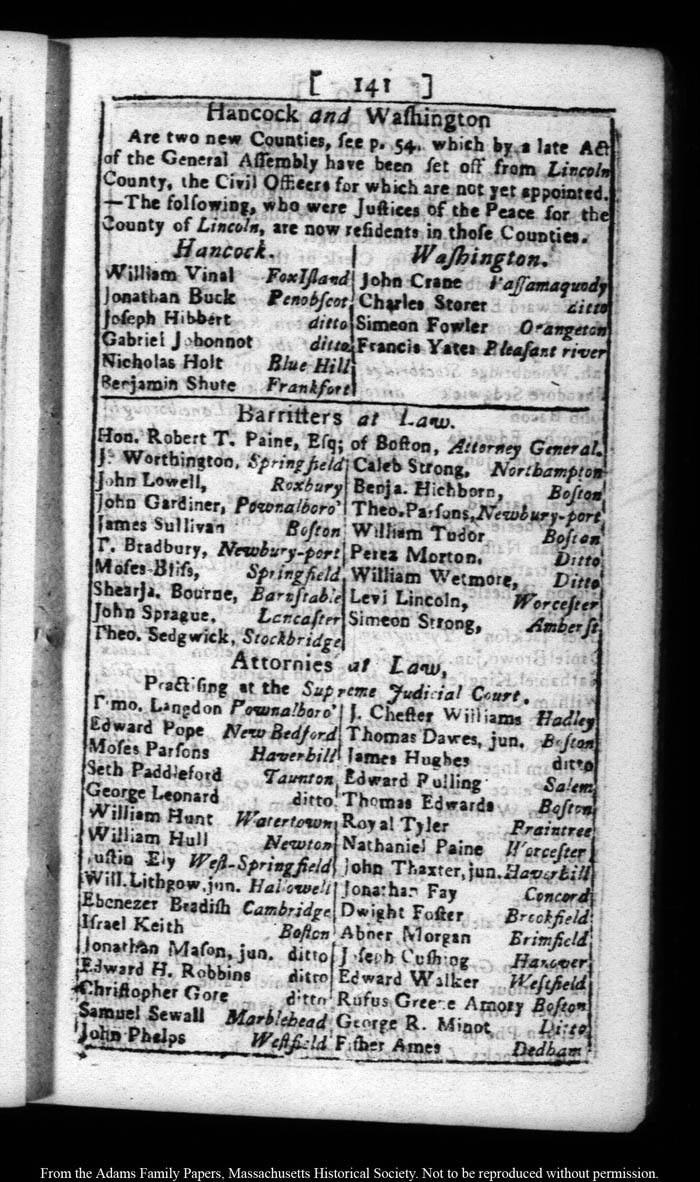 [ 141 ]
Hancock and Waſhington
Are two new Counties, ſee p. 54. which by a late Act
of the General Aſſembly have been ſet off from Lincoln
County, the Civil Officers for which are not yet appointed.
—The following, who were Juſtices of the Peace for the
County of Lincoln, are now reſidents in thoſe Counties.
Hancock.
William Vinal Fox Iſland
Jonathan Buck Penobſcot
Joſeph Hibbert ditto
Gabriel Johonnot ditto
Nicholas Holt Blue Hill
Benjamin Shute Frankfort
Waſhington.
John Crane Paſſamaquody
Charles Storer ditto
Simeon Fowler Orangeton
Francis Yates Pleaſant river
Barriſters at Law.
Hon. Robert T. Paine, Eſq; of Boſton, Attorney General.
Jⁿ Worthington, Springfield
John Lowell, Roxbury
John Gardiner, Pownalboro'
James Sullivan Boſton
T. Bradbury, Newbury-port
Moſes Bliſs, Springfield
Shearja. Bourne, Barnſtable
John Sprague, Lancaſter
Theo. Sedgwick, Stockbridge
Caleb Strong, Northampton
Benja. Hichborn, Boſton
Theo. Parſons, Newbury-port
William Tudor Boſton
Perez Morton, Ditto
William Wetmore, Ditto
Levi Lincoln, Worceſter
Simeon Strong, Amherſt
Attornies at Law,
Practiſing at the Supreme Judicial Court.
Timo. Langdon Pownalboro'
Edward Pope New Bedford
Moſes Parſons Haverhill
Seth Paddleford Taunton
George Leonard ditto
William Hunt Watertown
William Hull Newton
Juſtin Ely Weſt-Springfield
Will. Lithgow, jun. Hallowell
Ebenezer Bradiſh Cambridge
Iſrael Keith Boſton
Jonathan Maſon, jun. ditto
Edward H. Robbins ditto
Chriſtopher Gore ditto
Samuel Sewall Marblehead
John Phelps Weſtfield
J. Cheſter Williams Hadley
Thomas Dawes, jun. Boſton
James Hughes ditto
Edward Pulling Salem
Thomas Edwards Boſton
Royal Tyler Braintree
Nathaniel Paine Worceſter
John Thaxter, jun. Haverhill
Jonathan Fay Concord
Dwight Foſter Brookfield
Abner Morgan Brimfield
Joſeph Cuſhing Hanover
Edward Walker Weſtfield
Rufus Greene Amory Boſton
George R. Minot Ditto
Fiſher Ames Dedham
From the Adams Family Papers, Massachusetts Historical Society. Not to be reproduced without permission.